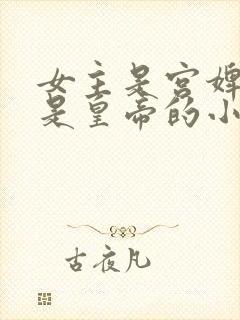 女主是宫婢
是皇帝的小
古夜凡